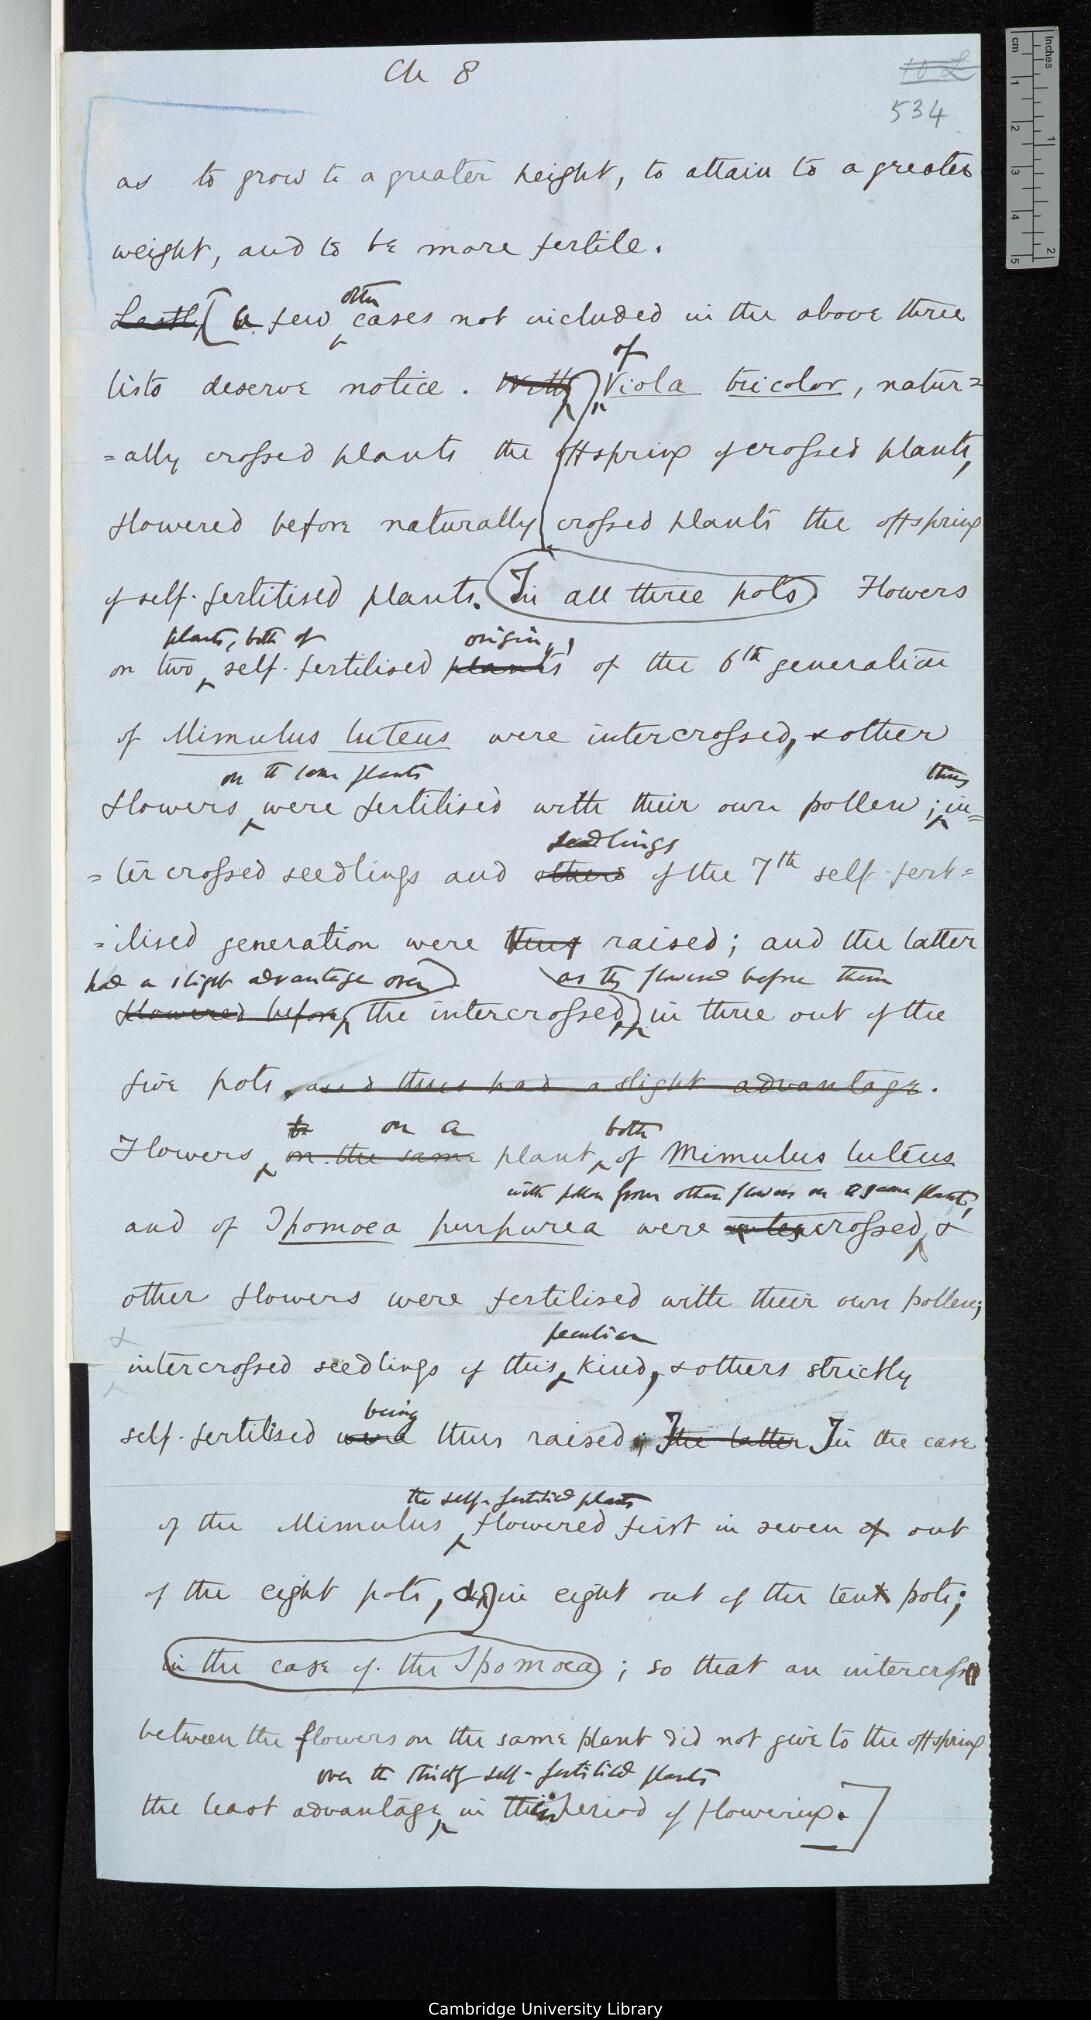 Ch 8
10 L
534
as to grow to a greater height, to attain to a greater
weight, and to be more fertile.
other
Lastly [A few cases not included in the above three
of
lists deserve notice. With Viola tricolor, natur=
=ally crossed plants the offspring of crossed plants,
flowered before naturally crossed plants the offspring
of self-fertilised plants. In all three pots. Flowers
plants, both of origin,
on two self-fertilised plants of the 6th generation
of Mimulus luteus were intercrossed, & other
on the same plants thus
flowers were fertilised with their own pollen; in=
seedlings
=tercrossed seedlings and others of the 7th self-fert=
=ilised generation were thus raised; and the latter
had a slight advantage over as they flowered before them
flowered before the intercrossed, in three out of the
five pots, and thus had a slight advantage.
on a both
Flowers on the same plant of Mimulus luteus
with pollen from other flowers on the same plant,
and of Ipomoea purpurea were intercrossed, &
other flowers were fertilised with their own pollen;
&
peculiar
intercrossed seedlings of this kind, & others strictly
being
self-fertilised were thus raised; The latter In the case
the self-fertilised plants
of the Mimulus flowered first in seven of out
of the eight pots, & in eight out of the ten pots;
in the case of the Ipomoea; so that an intercross
between the flowers on the same plant did not give to the offspring
over the strictly self-fertilised plants
the least advantage in their period of flowering.]
cm
Inches
1
2
3
4
5
1
2
Cambridge University Library